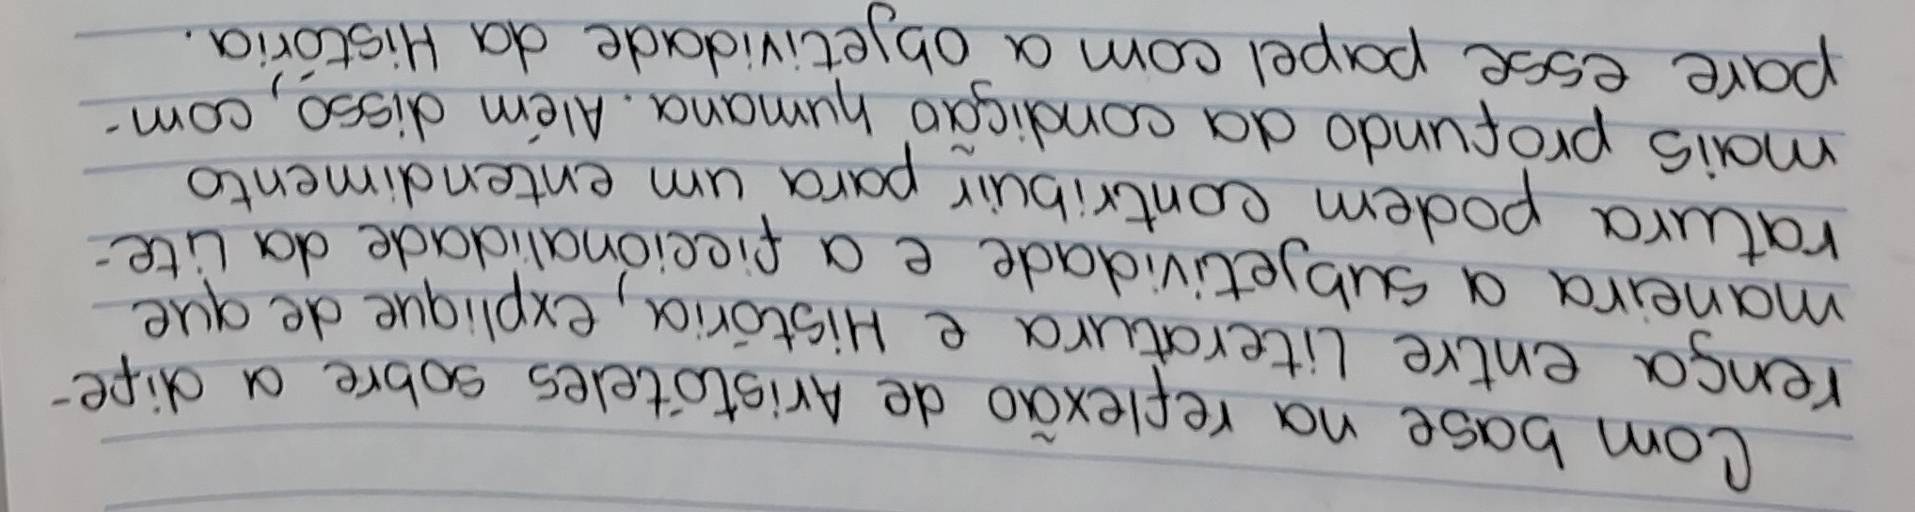 Com base na reflexão de Aristóteles sobre a dife-
rença entre Literatura e História, explique de que
maneira a subjetividade e a ficcionalidade da Lite-
ratura podem contribuir para um entendimento
mais profundo da condição humana. Além disso, com-
pare esse papel com a objetividade da História.